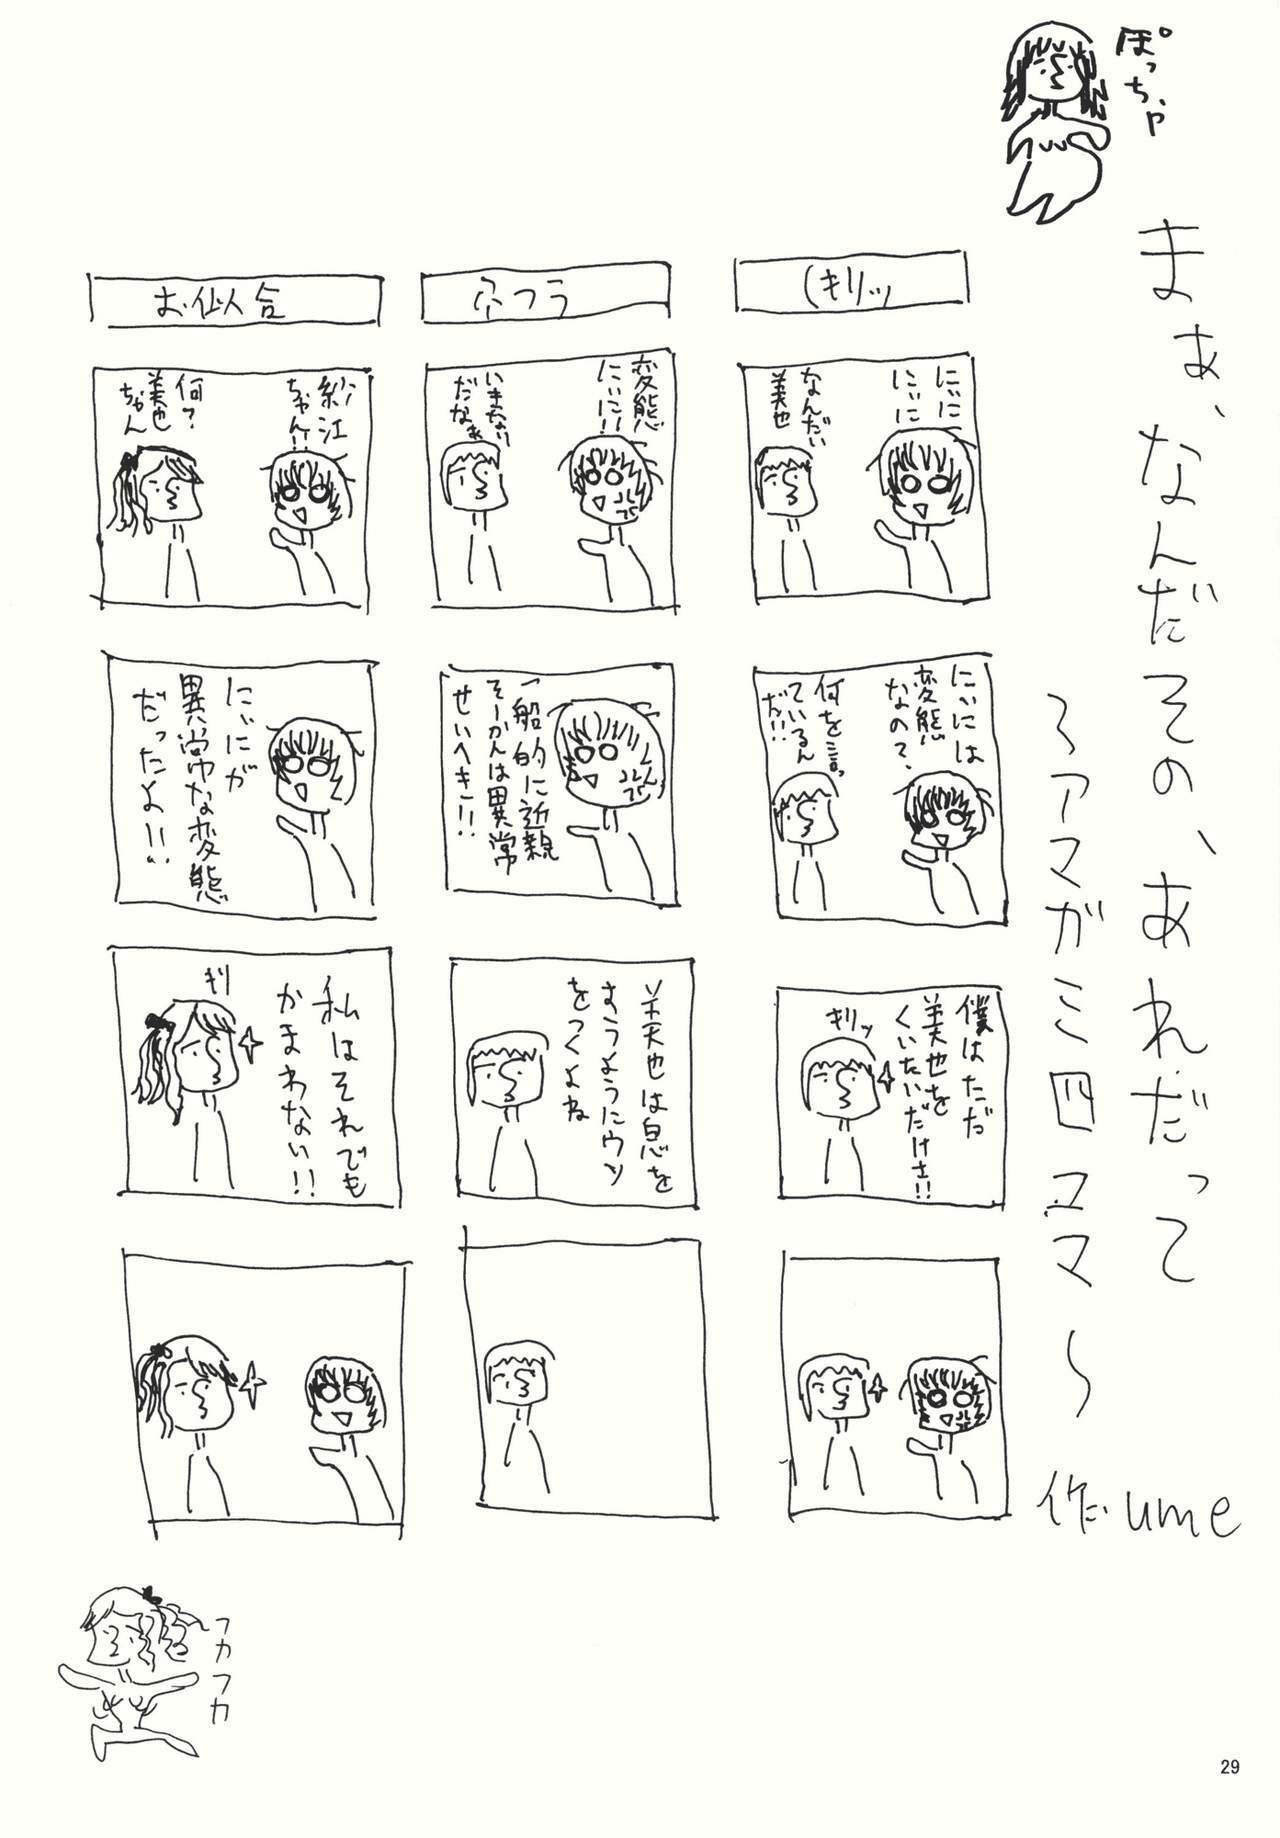 ぽっちゃ
まぁ、なんだその、あれだって
～アマガミ四コマ～
作だume
(キリッ
にぃに
にぃに
なんだい
美也
にぃには
変態
なの?
何を言っ
ているん
だ!!
僕はただ
美也を
くいたいだけさ!!
キリッ
変態
にぃに!!
いまさら
だなぁ
一般的に近親
そーかんは異常
せいへき!!
美也は息を
すうようにウソ
をつくよね
お似合
紗江
ちゃん!!
何?
美也
ちゃん
にぃにが
異常な変態
だったよ!!
私はそれでも
かまわない!!
キリ
フカフカ
29